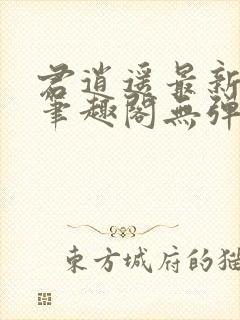 君逍遥最新
笔趣阁無弹
東方城府的猫